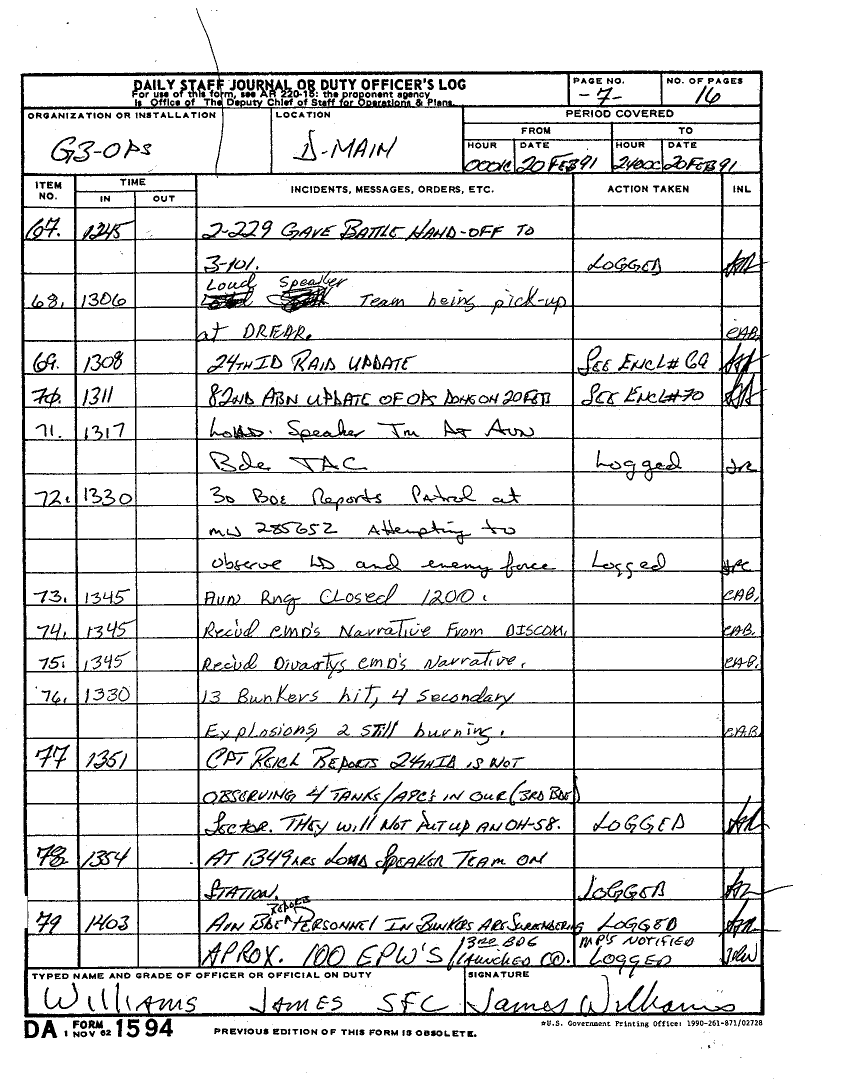 DAILY STAFF JOURNAL OR DUTY OFFICER'S LOG
For use of this form, see AR 220-15: the proponent agency
is Office of The Deputy Chief of Staff for Operations & Plans.
PAGE NO.
-7-
NO. OF PAGES
16
ORGANIZATION OR INSTALLATION
G3-OPS
LOCATION
D-MAIN
PERIOD COVERED
FROM
TO
HOUR
DATE
HOUR
DATE
0001C 20 FEB 91
2400C 20 FEB 91
ITEM NO.
TIME
IN
OUT
INCIDENTS, MESSAGES, ORDERS, ETC.
ACTION TAKEN
INL
67. 1245 2-229 GAVE BATTLE HAND-OFF TO
3-101. LOGGED
68. 1306 Loud Speaker Team being pick-up
at DREAR. CAB.
69. 1308 24TH ID RAID UPDATE SEE ENCL# 69
70. 1311 82ND ABN UPDATE OF OPS DONE ON 20 FEB SEE ENCL#70
71. 1317 Load Speaker Tm At Avn
Bde TAC Logged
72. 1330 3D BDE Reports Patrol at
MW 285652 Attempting to
observe LD and enemy force Logged
73. 1345 AVN Rng Closed 1200. CAB.
74. 1345 Recivd cmd's Narrative From DISCOM. CAB.
75. 1345 Recivd Divartys cmd's Narrative. CAB.
76. 1330 13 Bunkers hit, 4 secondary
Explosions, 2 still burning. CAB
77 1351 CPT REICH REPORTS 24TH ID IS NOT
OBSERVING 4 TANKS/APC'S IN OUR (3RD BDE)
SECTOR. THEY WILL NOT PUT UP AN OH-58. LOGGED
78 1354 AT 1349 HRS LOUD SPEAKER TEAM ON
STATION. LOGGED
79 1403 AVN BDE REPORT PERSONNEL IN BUNKERS ARE SURRENDERING LOGGED
APROX. 100 EPW'S / 3RD BDE LAUNCHED CO. MP'S NOTIFIED LOGGED
TYPED NAME AND GRADE OF OFFICER OR OFFICIAL ON DUTY
Williams James SFC
SIGNATURE
James Williams
DA FORM 1 NOV 62 1594
PREVIOUS EDITION OF THIS FORM IS OBSOLETE.
☆U.S. Government Printing Office: 1990-261-871/02728